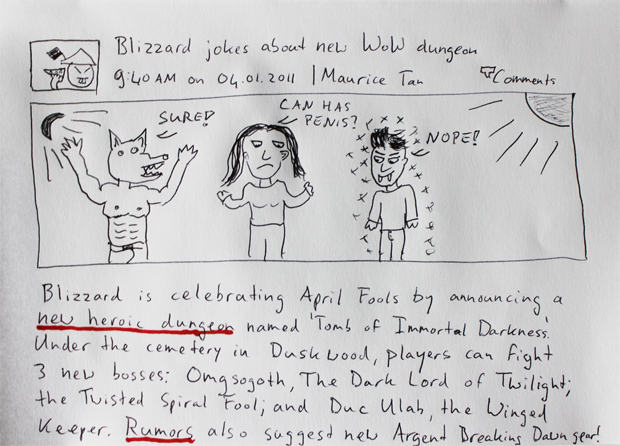 Blizzard jokes about new WoW dungeon
9:40 AM on 04.01.2011 | Maurice Tan
Comments
SURE!
CAN HAS
PENIS?
NOPE!
Blizzard is celebrating April Fools by announcing a
new heroic dungeon named 'Tomb of Immortal Darkness'.
Under the cemetery in Duskwood, players can fight
3 new bosses: Omgsogoth, The Dark Lord of Twilight;
the Twisted Spiral Fool; and Duc Ulah, the Winged
Keeper. Rumors also suggest new Argent Breaking Dawn gear!